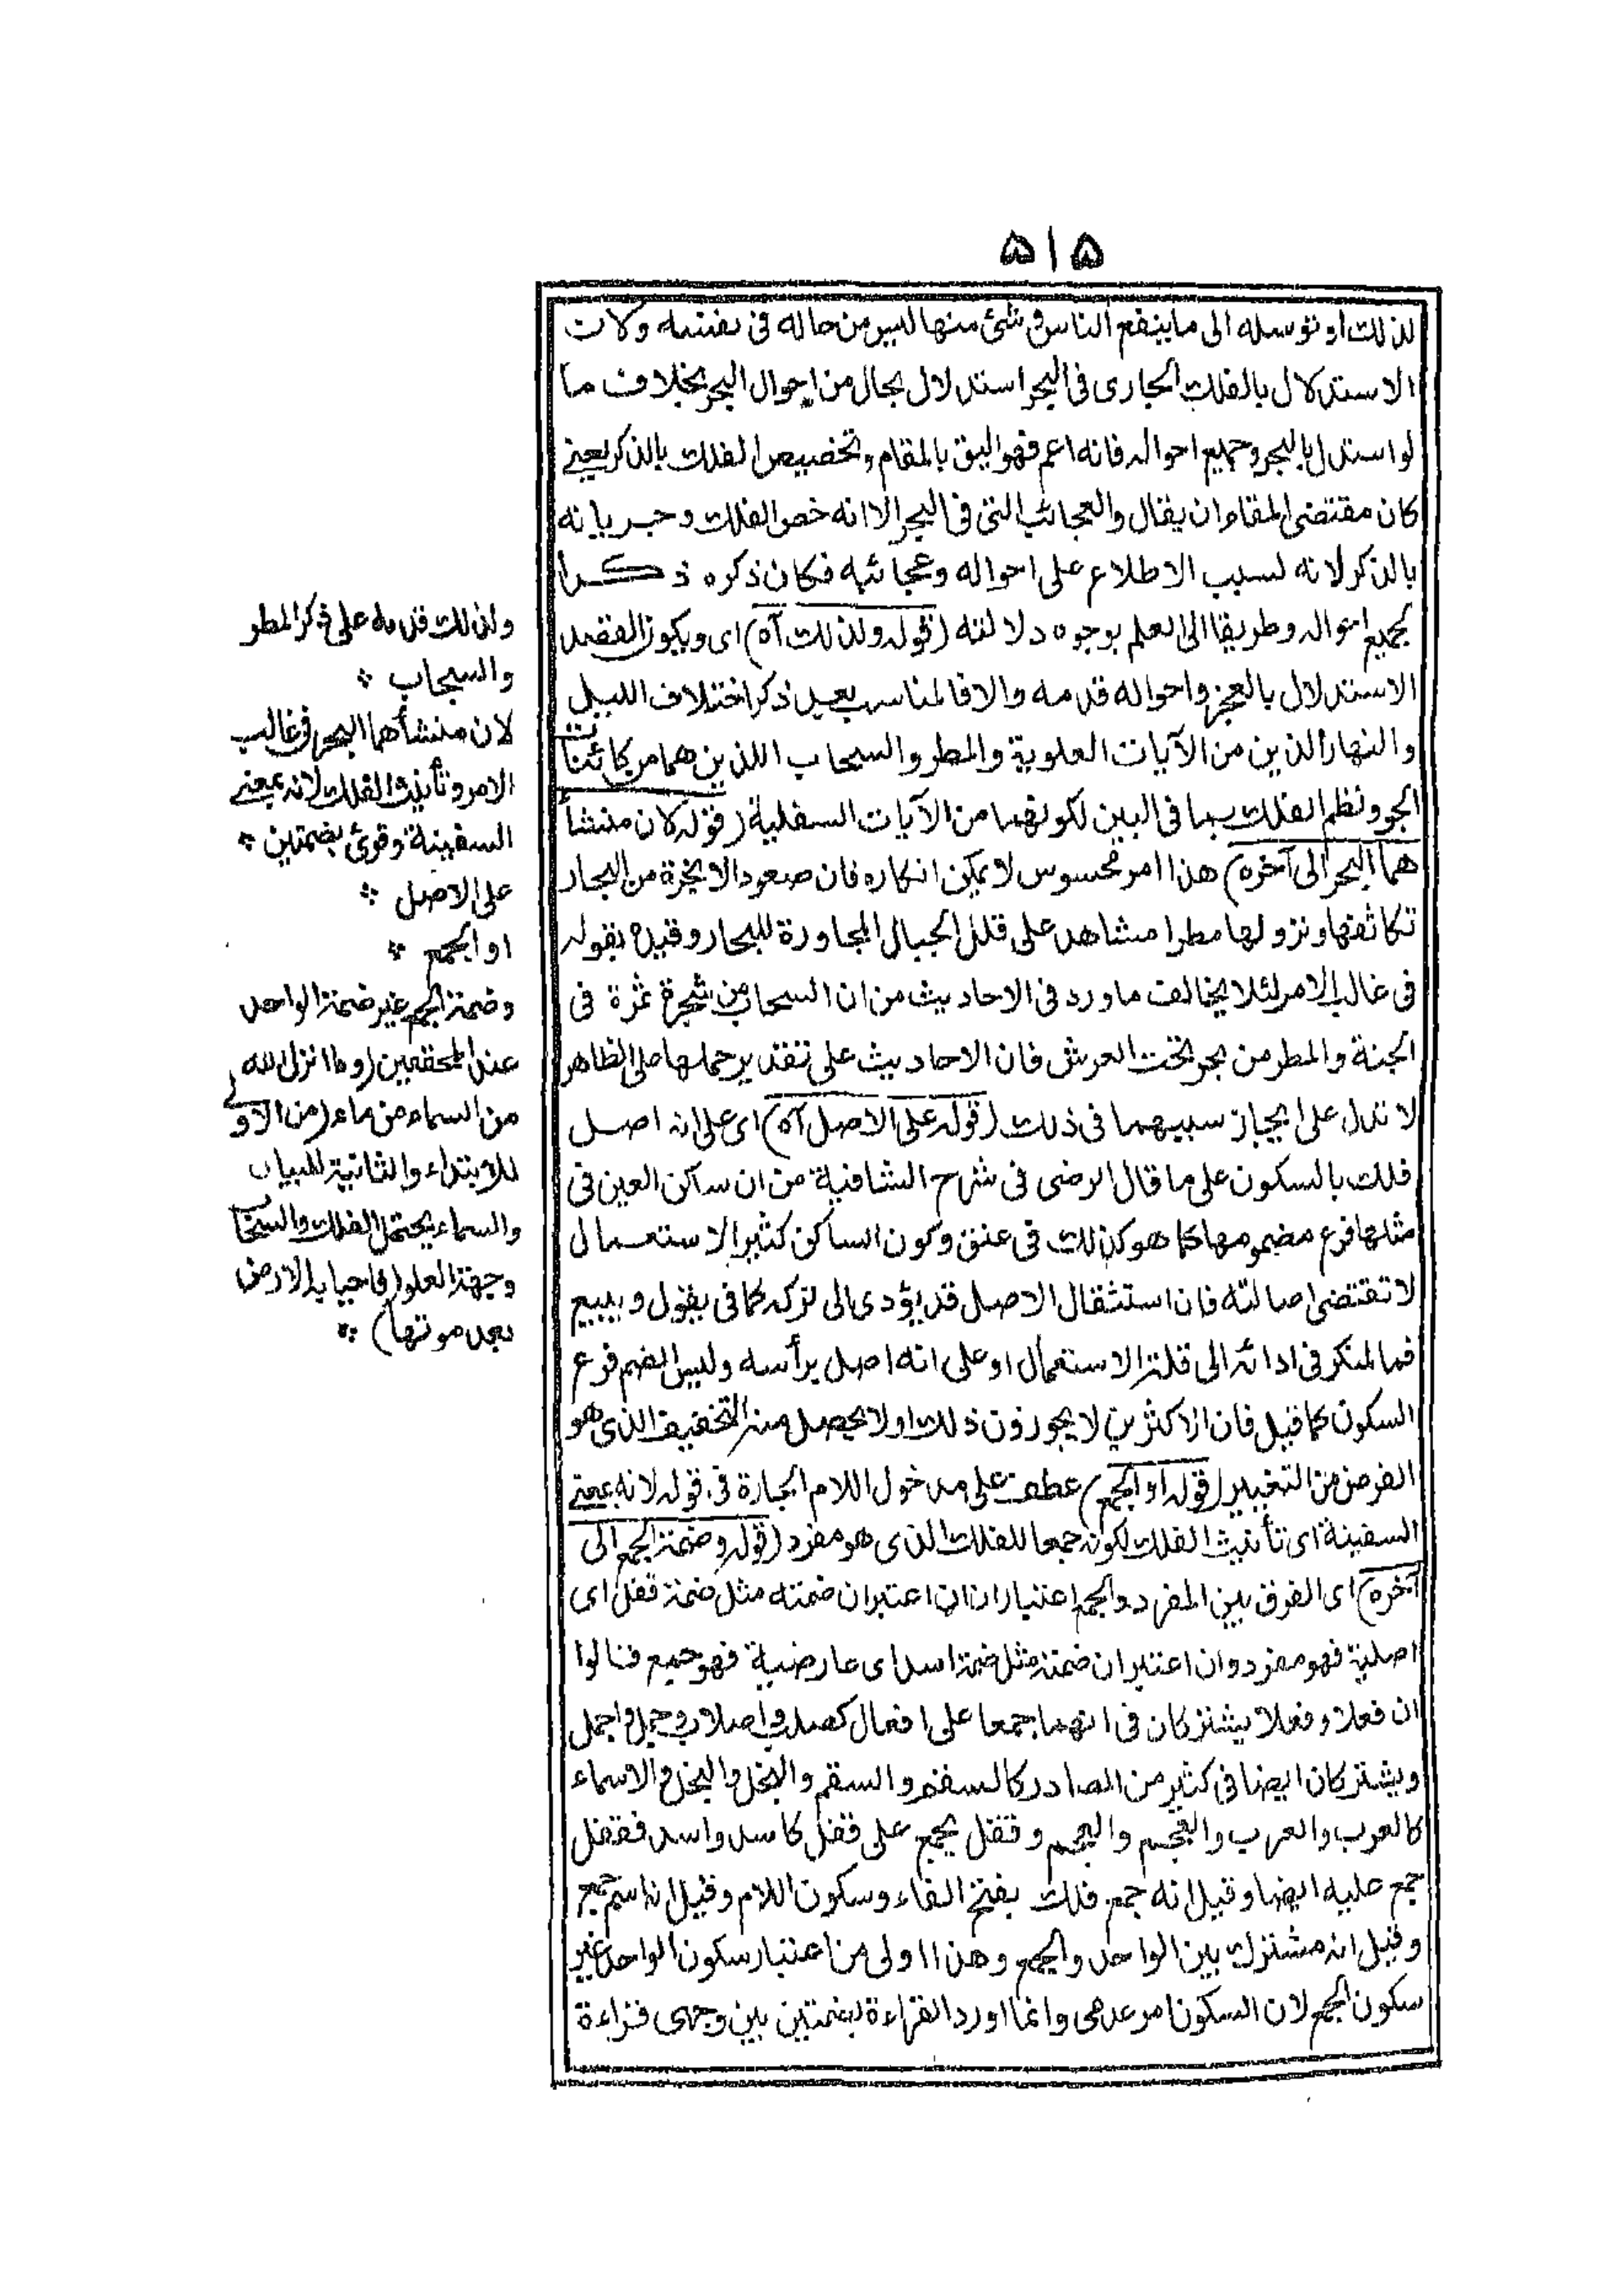 ۵۱۵
لذلك او توسله الى ما ينفع الناس فى شئ منها ليس من حاله فى نفسه ولان
الاستدلال بالفلك الجارى فى البحر استدلال بحال من احوال البحر بخلاف ما
لو استدل بالبحر وجميع احواله فانه اعم فهو اليق بالمقام وتخصيص الفلك بالذكر يعنى
كان مقتضى المقام ان يقال والعجائب التى فى البحر الا انه خص الفلك وجريانه
بالذكر لانه لسبب الاطلاع على احواله وعجائبه فكان ذكره ذكرا
لجميع احواله وطريقا الى العلم بوجوه دلالته (قوله ولذلك آه) اى ويكون القصد
الاستدلال بالبحر واحواله قدمه والا فالمناسب بعد ذكر اختلاف الليل
والنهار الذين من الآيات العلوية والمطر والسحاب اللذين هما من كائنات
الجو ونظم الفلك بما فى البين لكونهما من الآيات السفلية (قوله لان منشأ
هما البحر الى آخره) هذا امر محسوس لا يمكن انكاره فان صعود الابخرة من البحار
تكاثفها ونزولها مطرا مشاهد على قلل الجبال المجاورة للبحار وقيده بقوله
فى غالب الامر لئلا يخالف ما ورد فى الاحاديث من ان السحاب من شجرة ثمرة فى
الجنة والمطر من بحر تحت العرش فان الاحاديث على تقدير حملها على الظاهر
لا تدل على انحياز سببهما فى ذلك (قوله على الاصل آه) اى على انه اصل
فلك بالسكون على ما قال الرضى فى شرح الشافية من ان ساكن العين فى
مثلها فرع مضمومها كما هو كذلك فى عنق وكون الساكن كثير الاستعمال
لا تقتضى اصالته فان استثقال الاصل قد يؤدى الى تركه كما فى يقول ويبيع
فما لمنكر فى ادائه الى قلة الاستعمال او على انه اصل برأسه وليس الضم فرع
السكون كما قيل فان الاكثرين لا يجوزون ذلك اولا يحصل منه التخفيف الذى هو
الغرض من التغيير (قوله او الجمع) عطف على مدخول اللام الجارة فى قوله لانه بمعنى
السفينة اى تأنيث الفلك لكونه جمعا للفلك الذى هو مفرد (قوله وضمة الجمع الى
آخره) اى الفرق بين المفرد والجمع اعتبار ان ان اعتبر ان ضمته مثل ضمة قفل اى
اصلية فهو مفرد وان اعتبر ان ضمته مثل ضمة اسد اى عارضية فهو جمع قالوا
ان فعلا وفعلا يشتركان فى انهما جمعا على افعال كصلب واصلاب وجمل واجمل
ويشتركان ايضا فى كثير من المصادر كالسقم والسقم والبخل والبخل والاسماء
كالعرب والعرب والعجم والعجم وقفل يجمع على قفل كاسد واسد فقفل
جمع عليه ايضا وقيل انه جمع فلك بفتح الفاء وسكون اللام وقيل انه اسم جمع
وقيل انه مشترك بين الواحد والجمع وهذا اولى من اعتبار سكون الواحد غير
سكون الجمع لان السكون امر عدمى وانما اورد القراءة بضمتين بين وجهى قراءة
ولذلك قدمه على ذكر المطر
والسحاب
لان منشأهما البحر فى غالب
الامر وتأنيث الفلك لانه بمعنى
السفينة وقرئ بضمتين
على الاصل
او الجمع
وضمة الجمع غير ضمة الواحد
عند المحققين (وما انزل الله
من السماء من ماء) من الاولى
للابتداء والثانية للبيان
والسماء يحتمل الفلك والسحاب
وجهة العلو (فاحيا به الارض
بعد موتها)